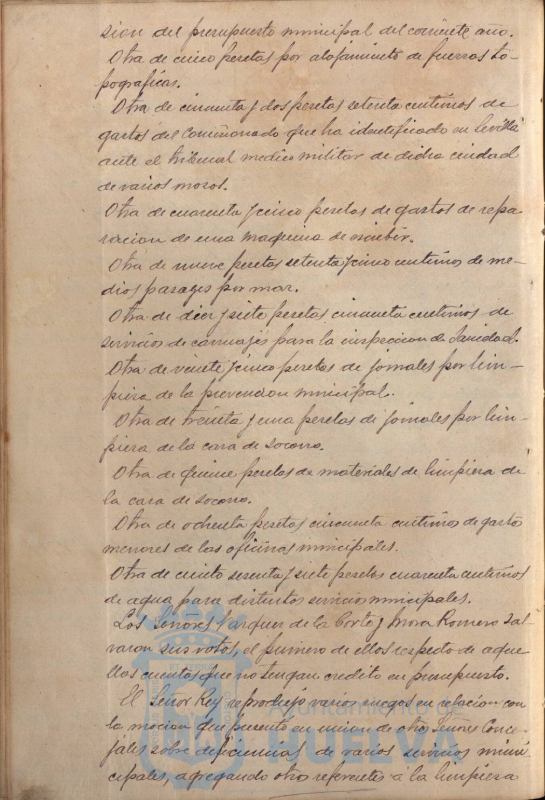 sion del presupuesto municipal del corriente año.
Otra de cinco pesetas por alojamiento de fuerzas to-
pograficas.
Otra de cincuenta y dos pesetas setenta centimos de
gastos del Comisionado que ha identificado en Sevilla
ante el tribunal medico militar de dicha ciudad
de varios mozos.
Otra de cuarenta y cinco pesetas de gastos de repa
racion de una maquina de escribir.
Otra de nueve pesetas setenta y cinco centimos de me-
dios pasages por mar.
Otra de diez y siete pesetas cincuenta centimos de
servicios de carruajes para la inspeccion de Sanidad.
Otra de veinte y cinco pesetas de jornales por lim-
pieza de la prevencion municipal.
Otra de treinta y una pesetas de jornales por lim-
pieza de la casa de socorro.
Otra de quince pesetas de materiales de limpieza de
la casa de socorro.
Otra de ochenta pesetas cincuenta centimos de gastos
menores de las oficinas municipales.
Otra de ciento sesenta y siete pesetas cuarenta centimos
de agua para distintos servicios municipales.
Los Señores Vazquez de la Corte y Mora Romero sal
varon sus votos, el primero de ellos respecto de aque
llas cuentas que no tengan credito en presupuesto.
El Señor Rey reprodujo varios ruegos en relacion con
la mocion que presentó en union de otros Señores Conce-
jales sobre deficiencias de varios servicios muni
cipales, agregando otros referentes á la limpieza
Ayuntamiento de
HUELVA